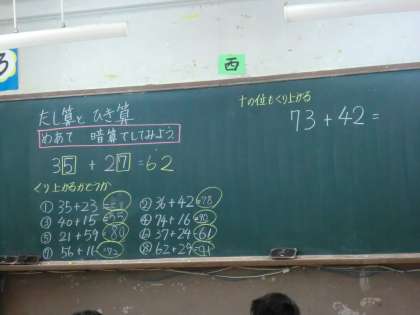 西
たし算と ひき算
めあて 暗算でしてみよう
35 + 27 = 62
くり上がるかどうか
① 35+23 = 58
② 36+42 = 78
③ 40+15 = 55
④ 74+16 = 90
⑤ 21+59 = 80
⑥ 37+24 = 61
⑦ 56+16 = 72
⑧ 62+29 = 91
十の位もくり上がる
73 + 42 =